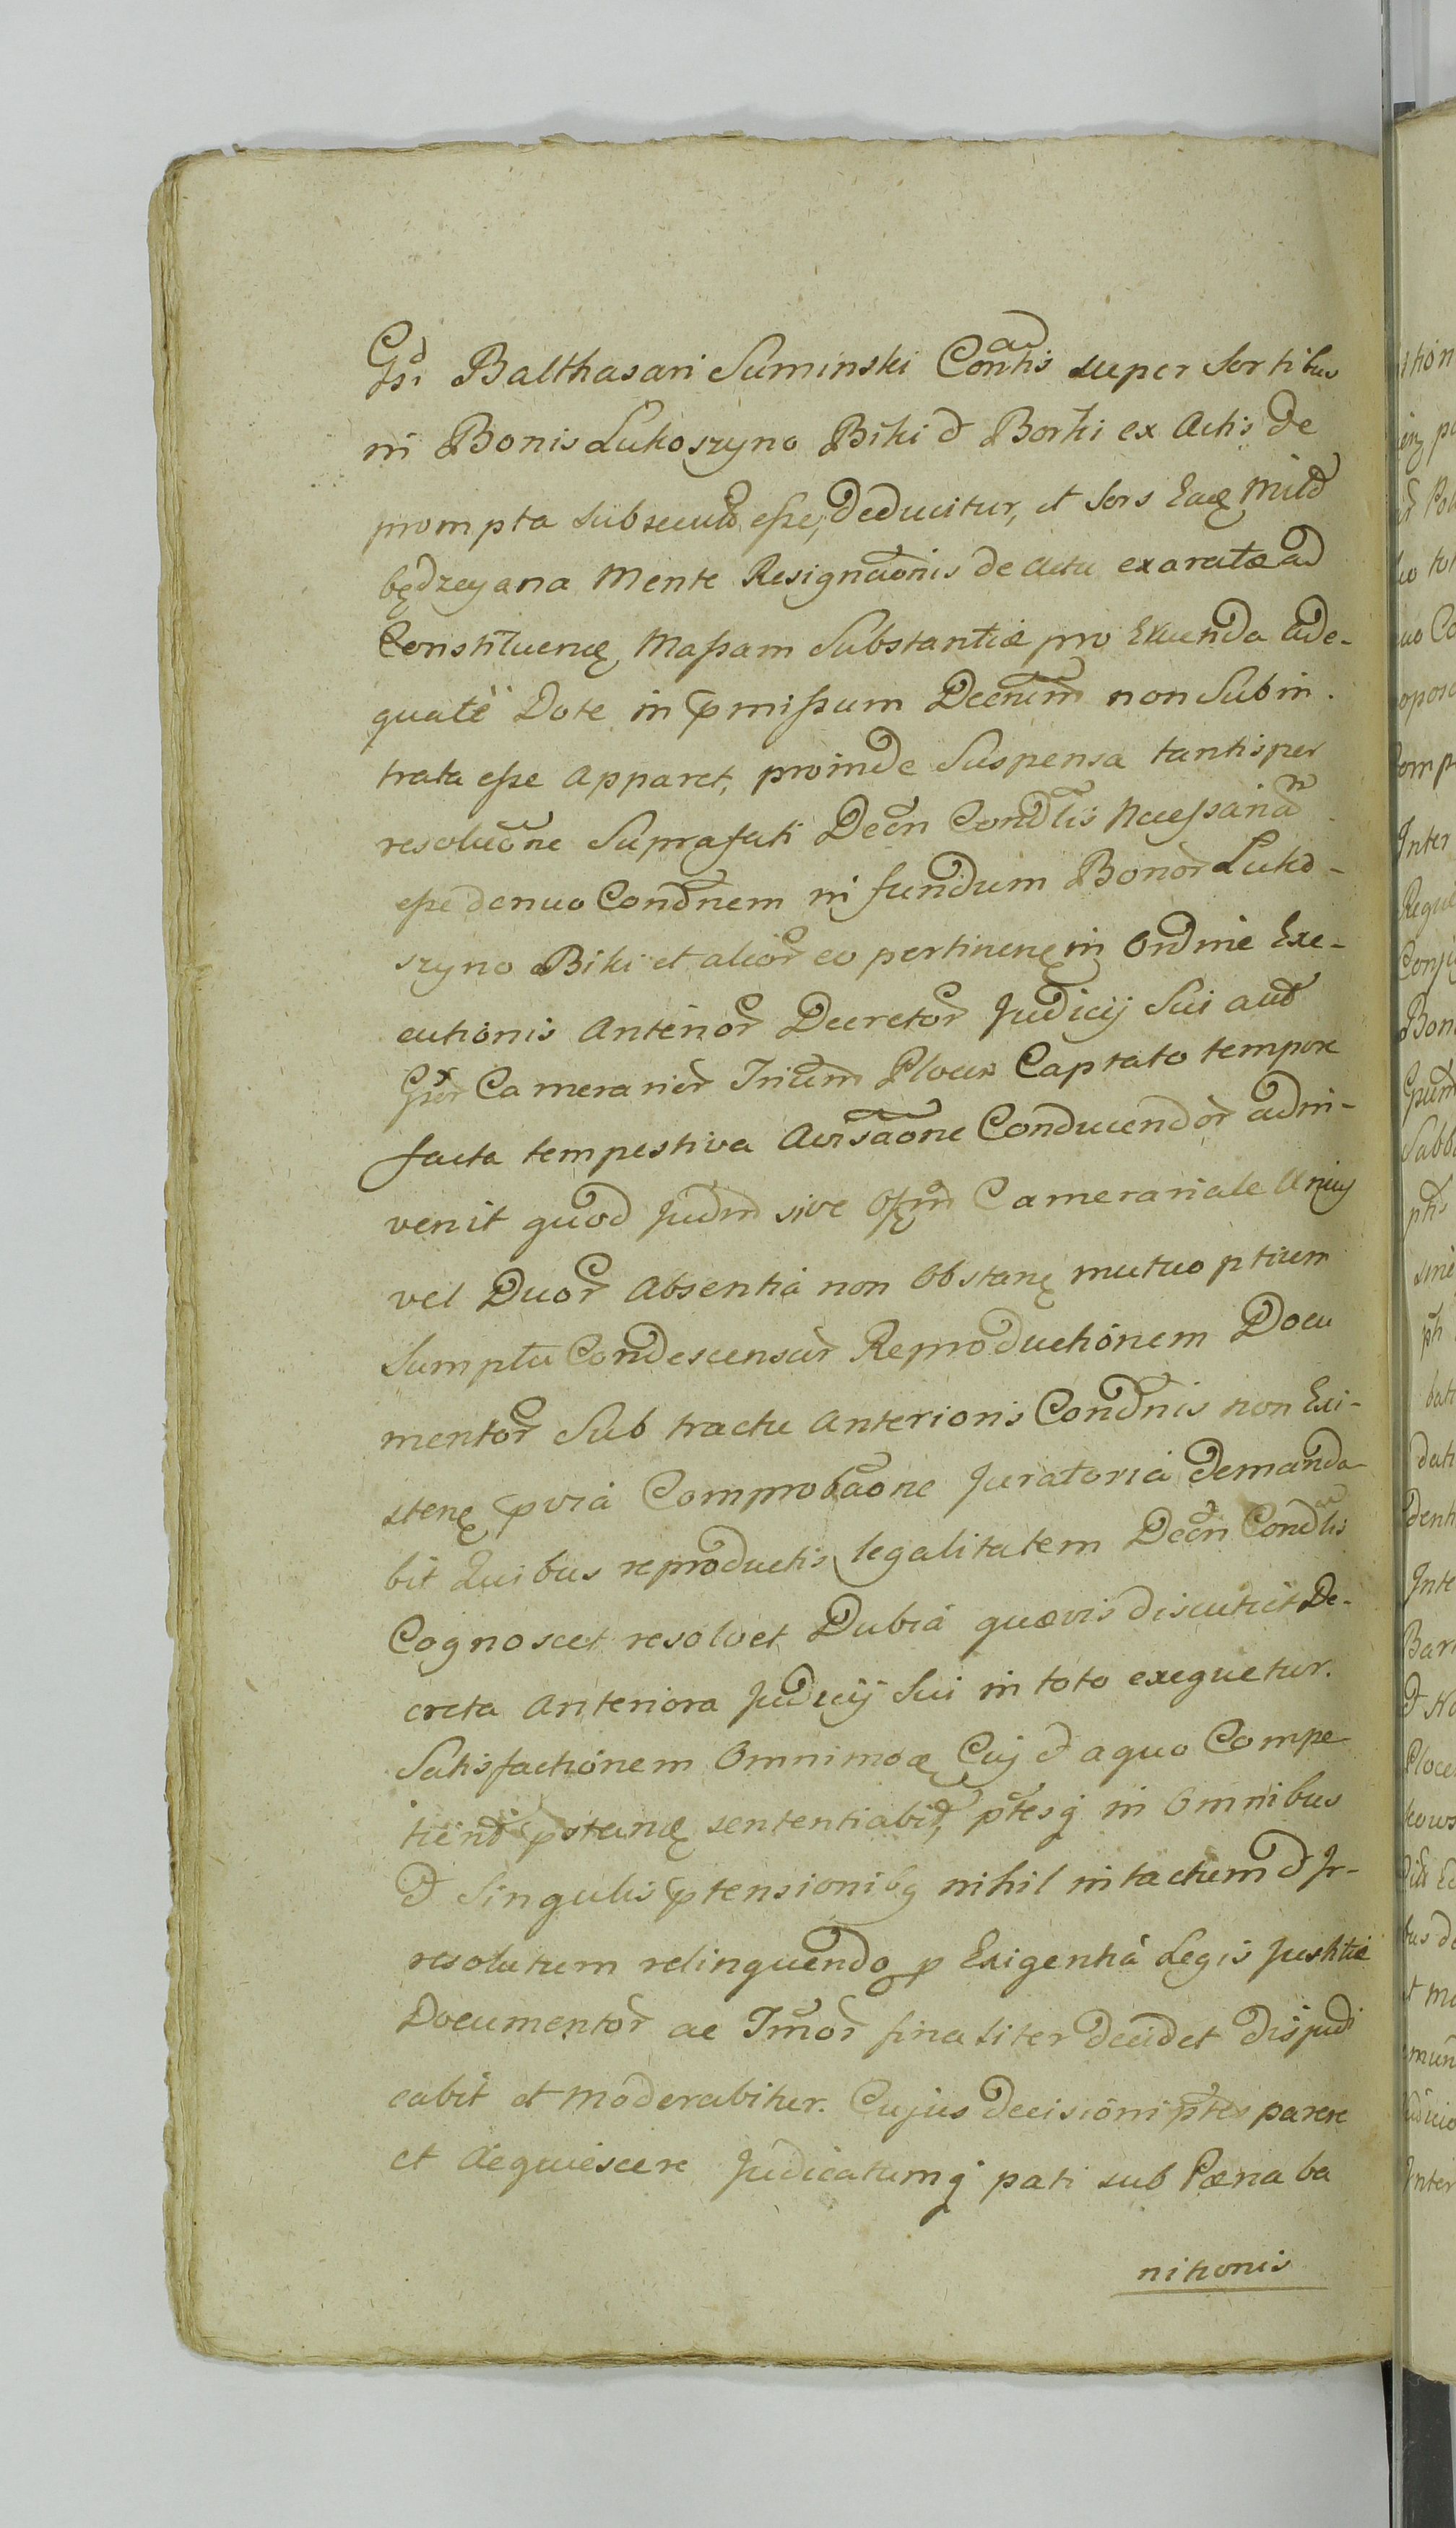 Gsi Balthasari Suminski Conthis super Sortibus
in Bonis Lukoszyno Biki & Borki ex Actis de
prompta subsecuto esse, deducitur, et Sors Eaę Mild
będzeyana Mente Resignaõnis de actu exaratæ ad
Constituenę Massam Substantiæ pro Exuenda Ade-
quatè Dote in pmissum Decnum non Subin-
trata esse Apparet, proinde Suspensa tantisper
resoluõne Suprafati Decn Condlis Necessariam
esse denuo Condnem in fundum Bonor Luko-
szyno Biki et alior eo pertinenę in Ordine Exe-
cutionis Anterior Decretor Judicij Sui aut
Gsor Camerarior Trium Plocen Captato tempore
facta tempestiva Avisaõne Conducendor adin-
venit quod Judm sive Offm Camerariale Unius
vel Duor Absentia non Obstanę mutuo ptium
Sumptu Condescensur Reproductionem Docu
mentor Sub tractu Anterioris Condnis non Exi-
stenę pvia Comprobaõne Juratoria demanda-
bit Quibus reproductis legalitatem Decn Condlis
Cognoscet resolvet Dubia quævis discutiet De-
creta Anteriora Judicij Sui in toto exequetur.
Satisfactionem Omnimodę Cuj & a quo Compe
tiend pstanę sententiabit, ptesq in Omnibus
& Singulis ptensionibq nihil intactum & Ir-
resolutum relinquendo p Exigentia Legis Justitiæ
Documentor ac Jmor finaliter decidet disjudi
cabit et moderabitur. Cujus decisioni ptes parere
et Acquiescere Judicatumq pati sub Pœna ba
nitionis